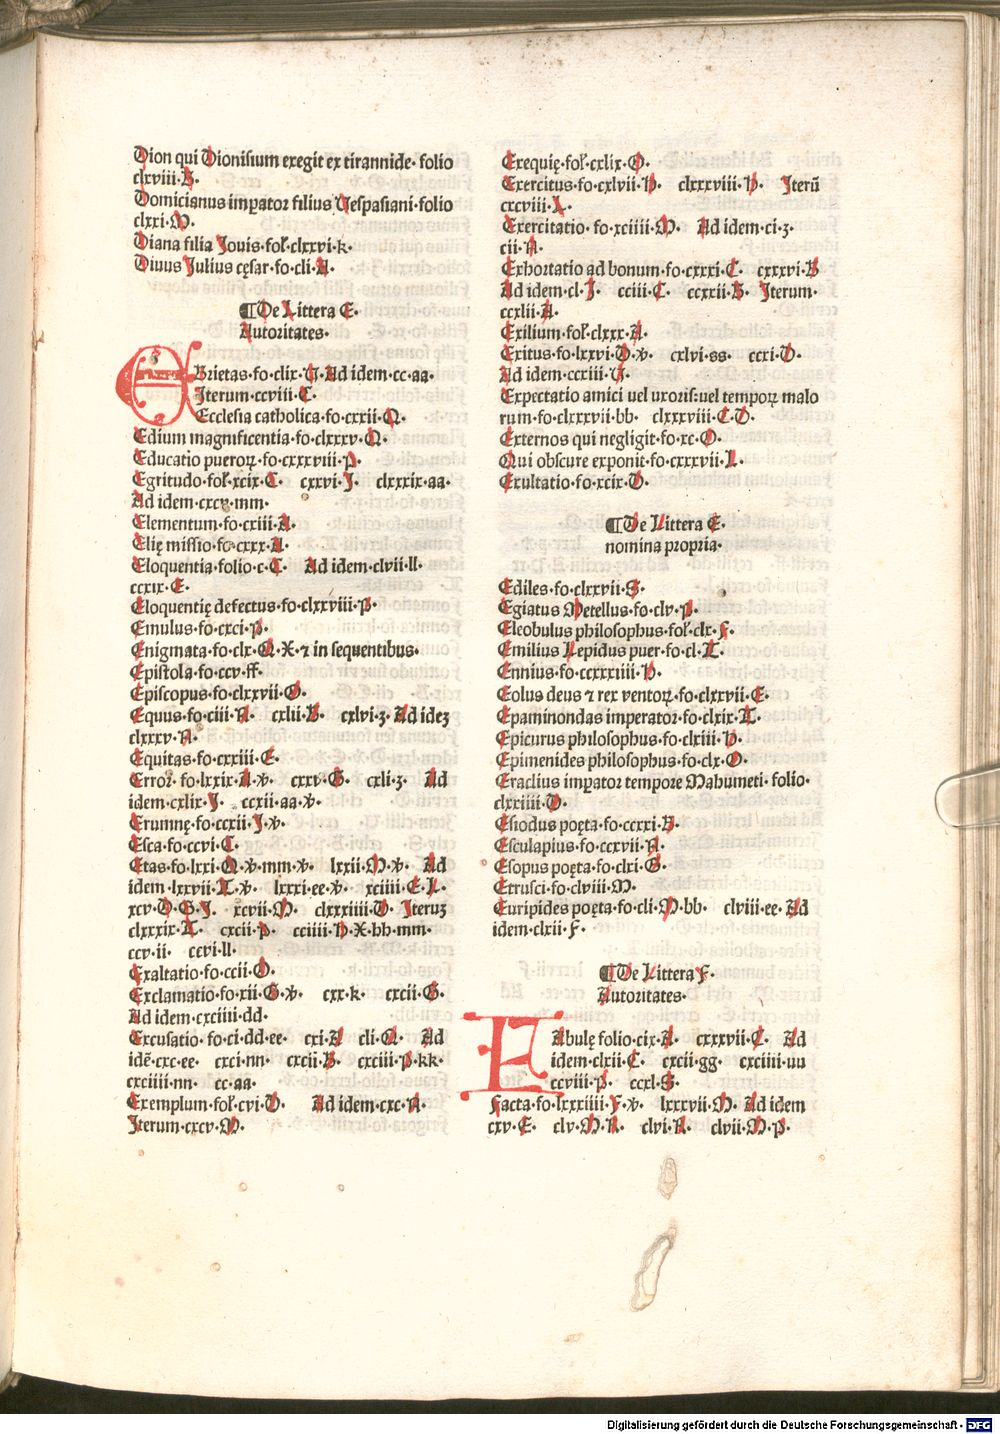 Dion qui Dionisium exegit ex tirannide· folio
clxviii·B·
Domicianus impator filius Vespasiani·folio
clxxi·M·
Diana filia Jouis·fol·clxxvi·k·
Diuus Julius cęsar·fo·cli·A·
¶De Littera E·
Autoritates·
Ebrietas·fo·clix·V·Ad idem·cc·aa·
Iterum·ccviii·C·
Ecclesia catholica·fo·cxxii·Q·
Edium magnificentia·fo·clxxxv·Q·
Educatio pueroꝝ·fo·cxxxviii·P·
Egritudo·fol·xcix·C· cxxvi·J· clxxxix·aa·
Ad idem·cxcv·mm·
Elementum·fo·cxiii·A·
Elię missio·fo·cxxx·A·
Eloquentia·folio·c·C· Ad idem·clvii·ll·
ccxix·E·
Eloquentię defectus·fo·clxxviii·P·
Emulus·fo·cxci·P·
Enigmata·fo·clx·Q·X·⁊ in sequentibus·
Epistola·fo·ccv·ff·
Episcopus·fo·clxxvii·O·
Equus·fo·ciii·N· cxlii·B· cxlvi·z·Ad idez
clxxxv·N·
Equitas·fo·cxxiii·E·
Error·fo·lxxix·A·v· cxxv·G· cxli·z· Ad
idem·cxlix·J· ccxii·aa·v·
Erumnę·fo·ccxii·J·v·
Esca·fo·ccvi·C·
Etas·fo·lxxi·Q·v·mm·v· lxxii·M·v· Ad
idem·lxxvii·T·v· lxxxi·ee·v· xciiii·E·L·
xcv·D·G·J· xcvii·M· clxxxiiii·D· Iteruz
clxxxix·T· cxcii·P· cciiii·H·X·bb·mm·
ccv·ii· ccvi·ll·
Exaltatio·fo·ccii·O·
Exclamatio·fo·xii·G·v· cxx·k· cxcii·G·
Ad idem·cxciiii·dd·
Excusatio·fo·ci·dd·ee· cxi·A· cli·Q· Ad
idē·cxc·ee· cxci·nn· cxcii·B· cxciii·P·kk·
cxciiii·nn· cc·aa·
Exemplum·fol·cvi·D· Ad idem·cxc·N·
Iterum·cxcv·M·
Exequię·fol·cxlix·O·
Exercitus·fo·cxlvii·H· clxxxviii·H· Iterū
cxcviii·L·
Exercitatio·fo·xciiii·M· Ad idem·ci·z·
cii·N·
Exhortatio ad bonum·fo·cxxxi·C· cxxxvi·B
Ad idem·cl·J· cciii·C· ccxxii·B· Iterum·
ccxlii·A·
Exilium·fol·clxxx·A·
Exitus·fo·lxxvi·D·v· cxlvi·ss· ccxi·D·
Ad idem·ccxiii·V·
Expectatio amici uel uxoris:uel tempoꝝ malo
rum·fo·clxxxvii·bb· clxxxviii·C·D·
Externos qui negligit·fo·xc·O·
Qui obscure exponit·fo·cxxxvii·L·
Exultatio·fo·xcix·D·
¶De Littera E·
nomina propria·
Ediles·fo·clxxvii·S·
Egiatus Metellus·fo·clv·P·
Eleobulus philosophus·fol·clx·F·
Emilius Lepidus puer·fo·cl·T·
Ennius·fo·ccxxxiiii·H·
Eolus deus ⁊ rex ventoꝝ·fo·clxxvii·E·
Epaminondas imperator·fo·clxix·T·
Epicurus philosophus·fo·clxiii·H·
Epimenides philosophus·fo·clx·O·
Eraclius impator tempore Mahumeti·folio·
clxxiiii·D·
Esiodus poęta·fo·ccxxi·B·
Esculapius·fo·ccxvii·N·
Esopus poęta·fo·clxi·G·
Etrusci·fo·clviii·M·
Euripides poęta·fo·cli·M·bb· clviii·ee·Ad
idem·clxii·F·
¶De Littera F·
Autoritates·
FAbulę folio·cix·A· cxxxvii·C· Ad
idem·clxii·C· cxcii·gg· cxciiii·uu
ccviii·P· ccxl·S·
Facta·fo·lxxxiiii·F·v· lxxxvii·M·Ad idem
cxv·E· clv·M·N· clvi·N· clvii·M·P·
Digitalisierung gefördert durch die Deutsche Forschungsgemeinschaft - DFG